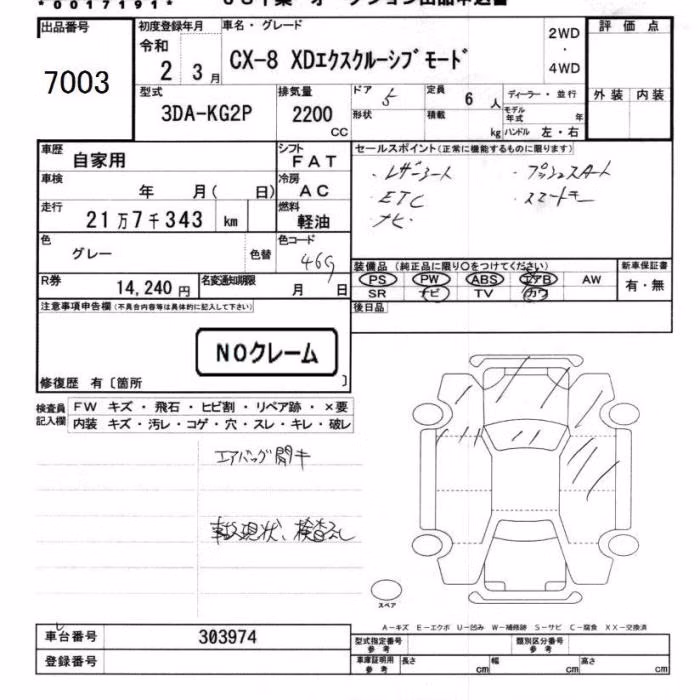 *0017191*
出品番号
7003
初度登録年月
令和
2 3月
車名・グレード
CX-8 XDエクスクルーシブモード
2WD
・
4WD
評価点
外装 内装
型式
3DA-KG2P
排気量
2200
CC
ドア
5
定員
6 人
形状
積載
kg
ディーラー・並行
モデル年式 年
ハンドル 左・右
車歴
自家用
シフト
FAT
車検
年 月( 日)
冷房
AC
走行
21万7千343 km
燃料
軽油
色
グレー
色替
色コード
46G
R券
14,240円
名変通知期限
月 日
セールスポイント(正常に機能するものに限ります)
・レザーシート ・プッシュスタート
・ETC ・スマートキー
・ナビ
装備品(純正品に限り○をつけてください)
PS PW ABS エアB AW
SR ナビ TV カワ
新車保証書
有・無
後日品
注意事項申告欄(不具合内容等は具体的に記入して下さい)
NOクレーム
修復歴 有〔箇所 〕
検査員記入欄
FW キズ・飛石・ヒビ割・リペア跡・×要
内装 キズ・汚レ・コゲ・穴・スレ・キレ・破レ
エアバッグ開キ
事故現状、検査なし
スペア
A-キズ E-エクボ U-凹み W-補修跡 S-サビ C-腐食 XX-交換済
車台番号
303974
登録番号
型式指定番号
参考
類別区分番号
参考
車庫証明用
参考
長さ cm
幅 cm
高さ cm